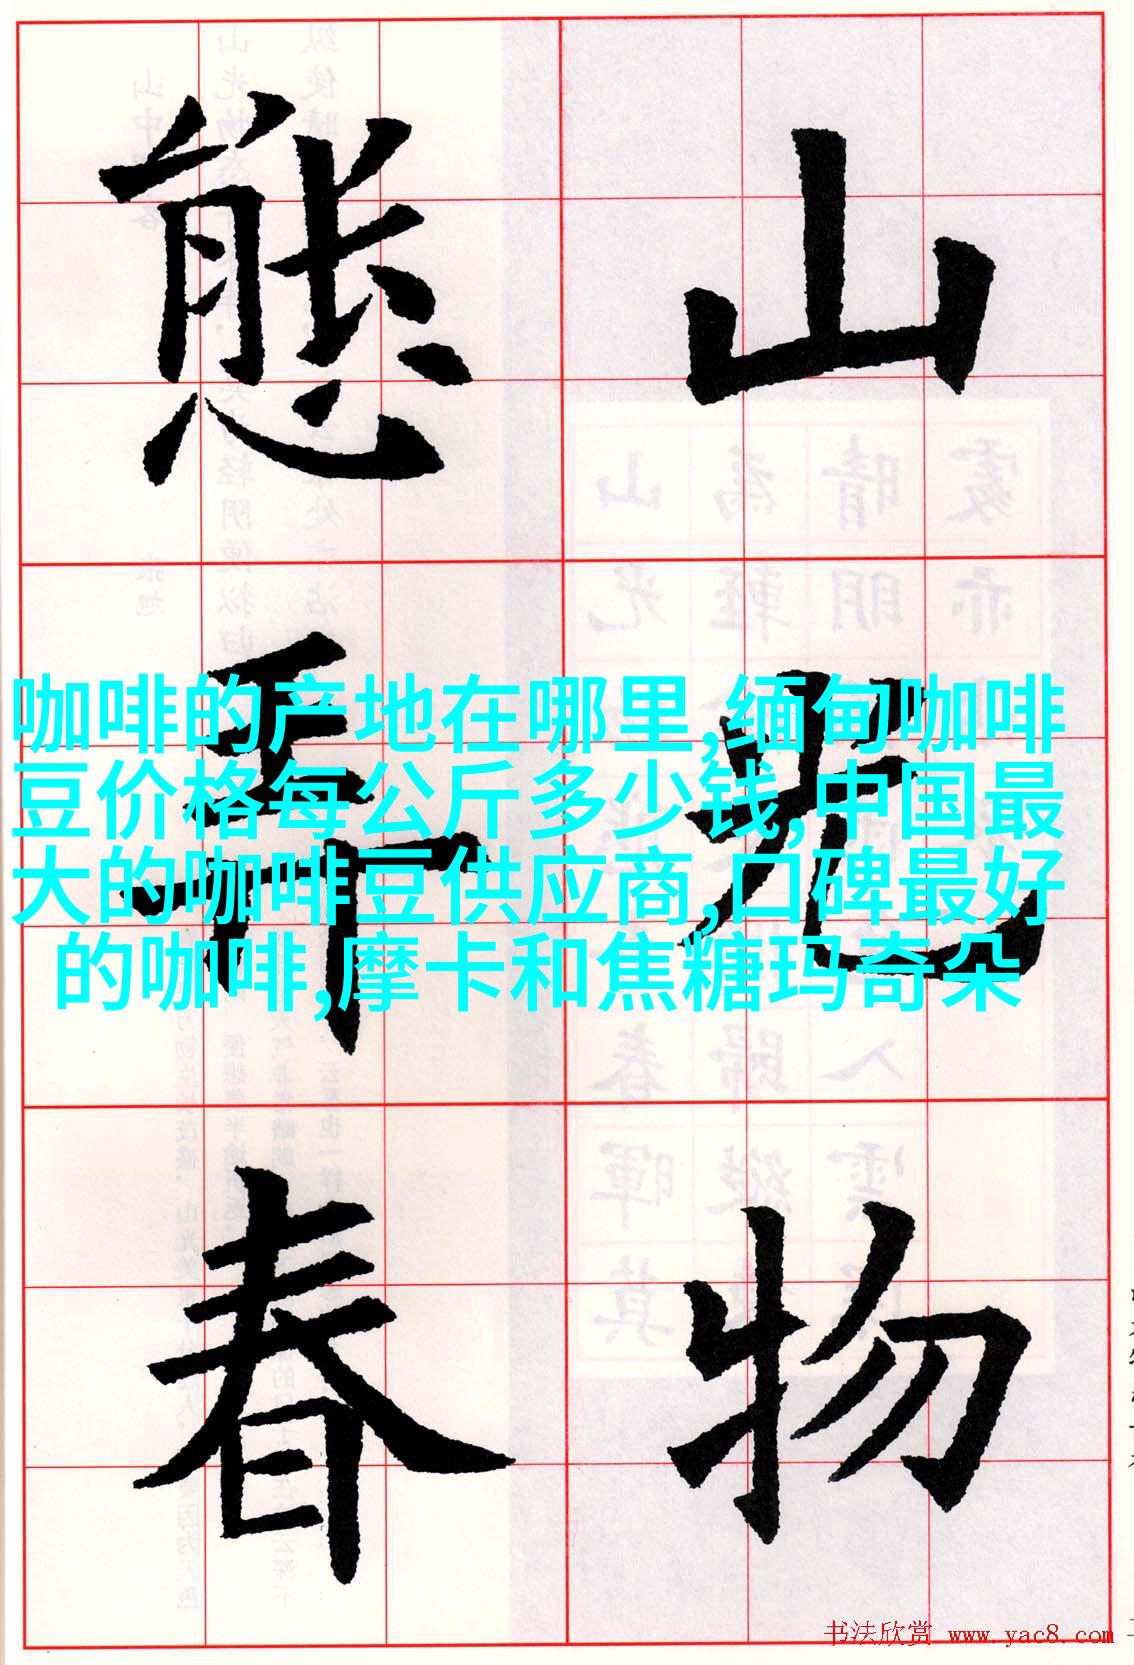 山光物
態弄春
咖啡的产地在哪里,缅甸咖啡
豆价格每公斤多少钱,中国最
大的咖啡豆供应商,口碑最好
的咖啡,摩卡和焦糖玛奇朵
书法欣赏 www.yac8.com